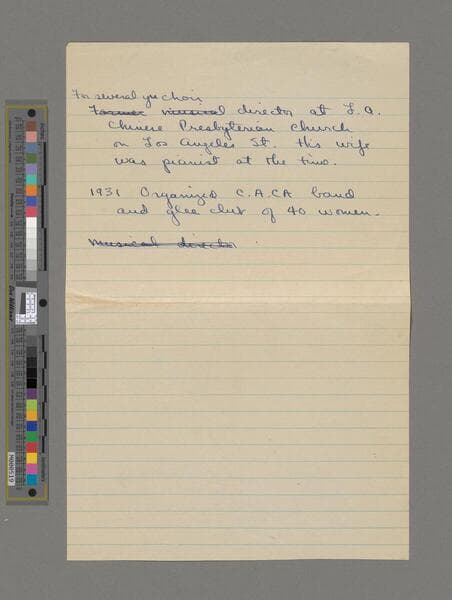 For several yrs choir
Former musical director at L.A.
Chinese Presbyterian Church
on Los Angeles St. His wife
was pianist at the time.
1931 Organized C.A.CA band
and glee club of 40 women.
Musical director